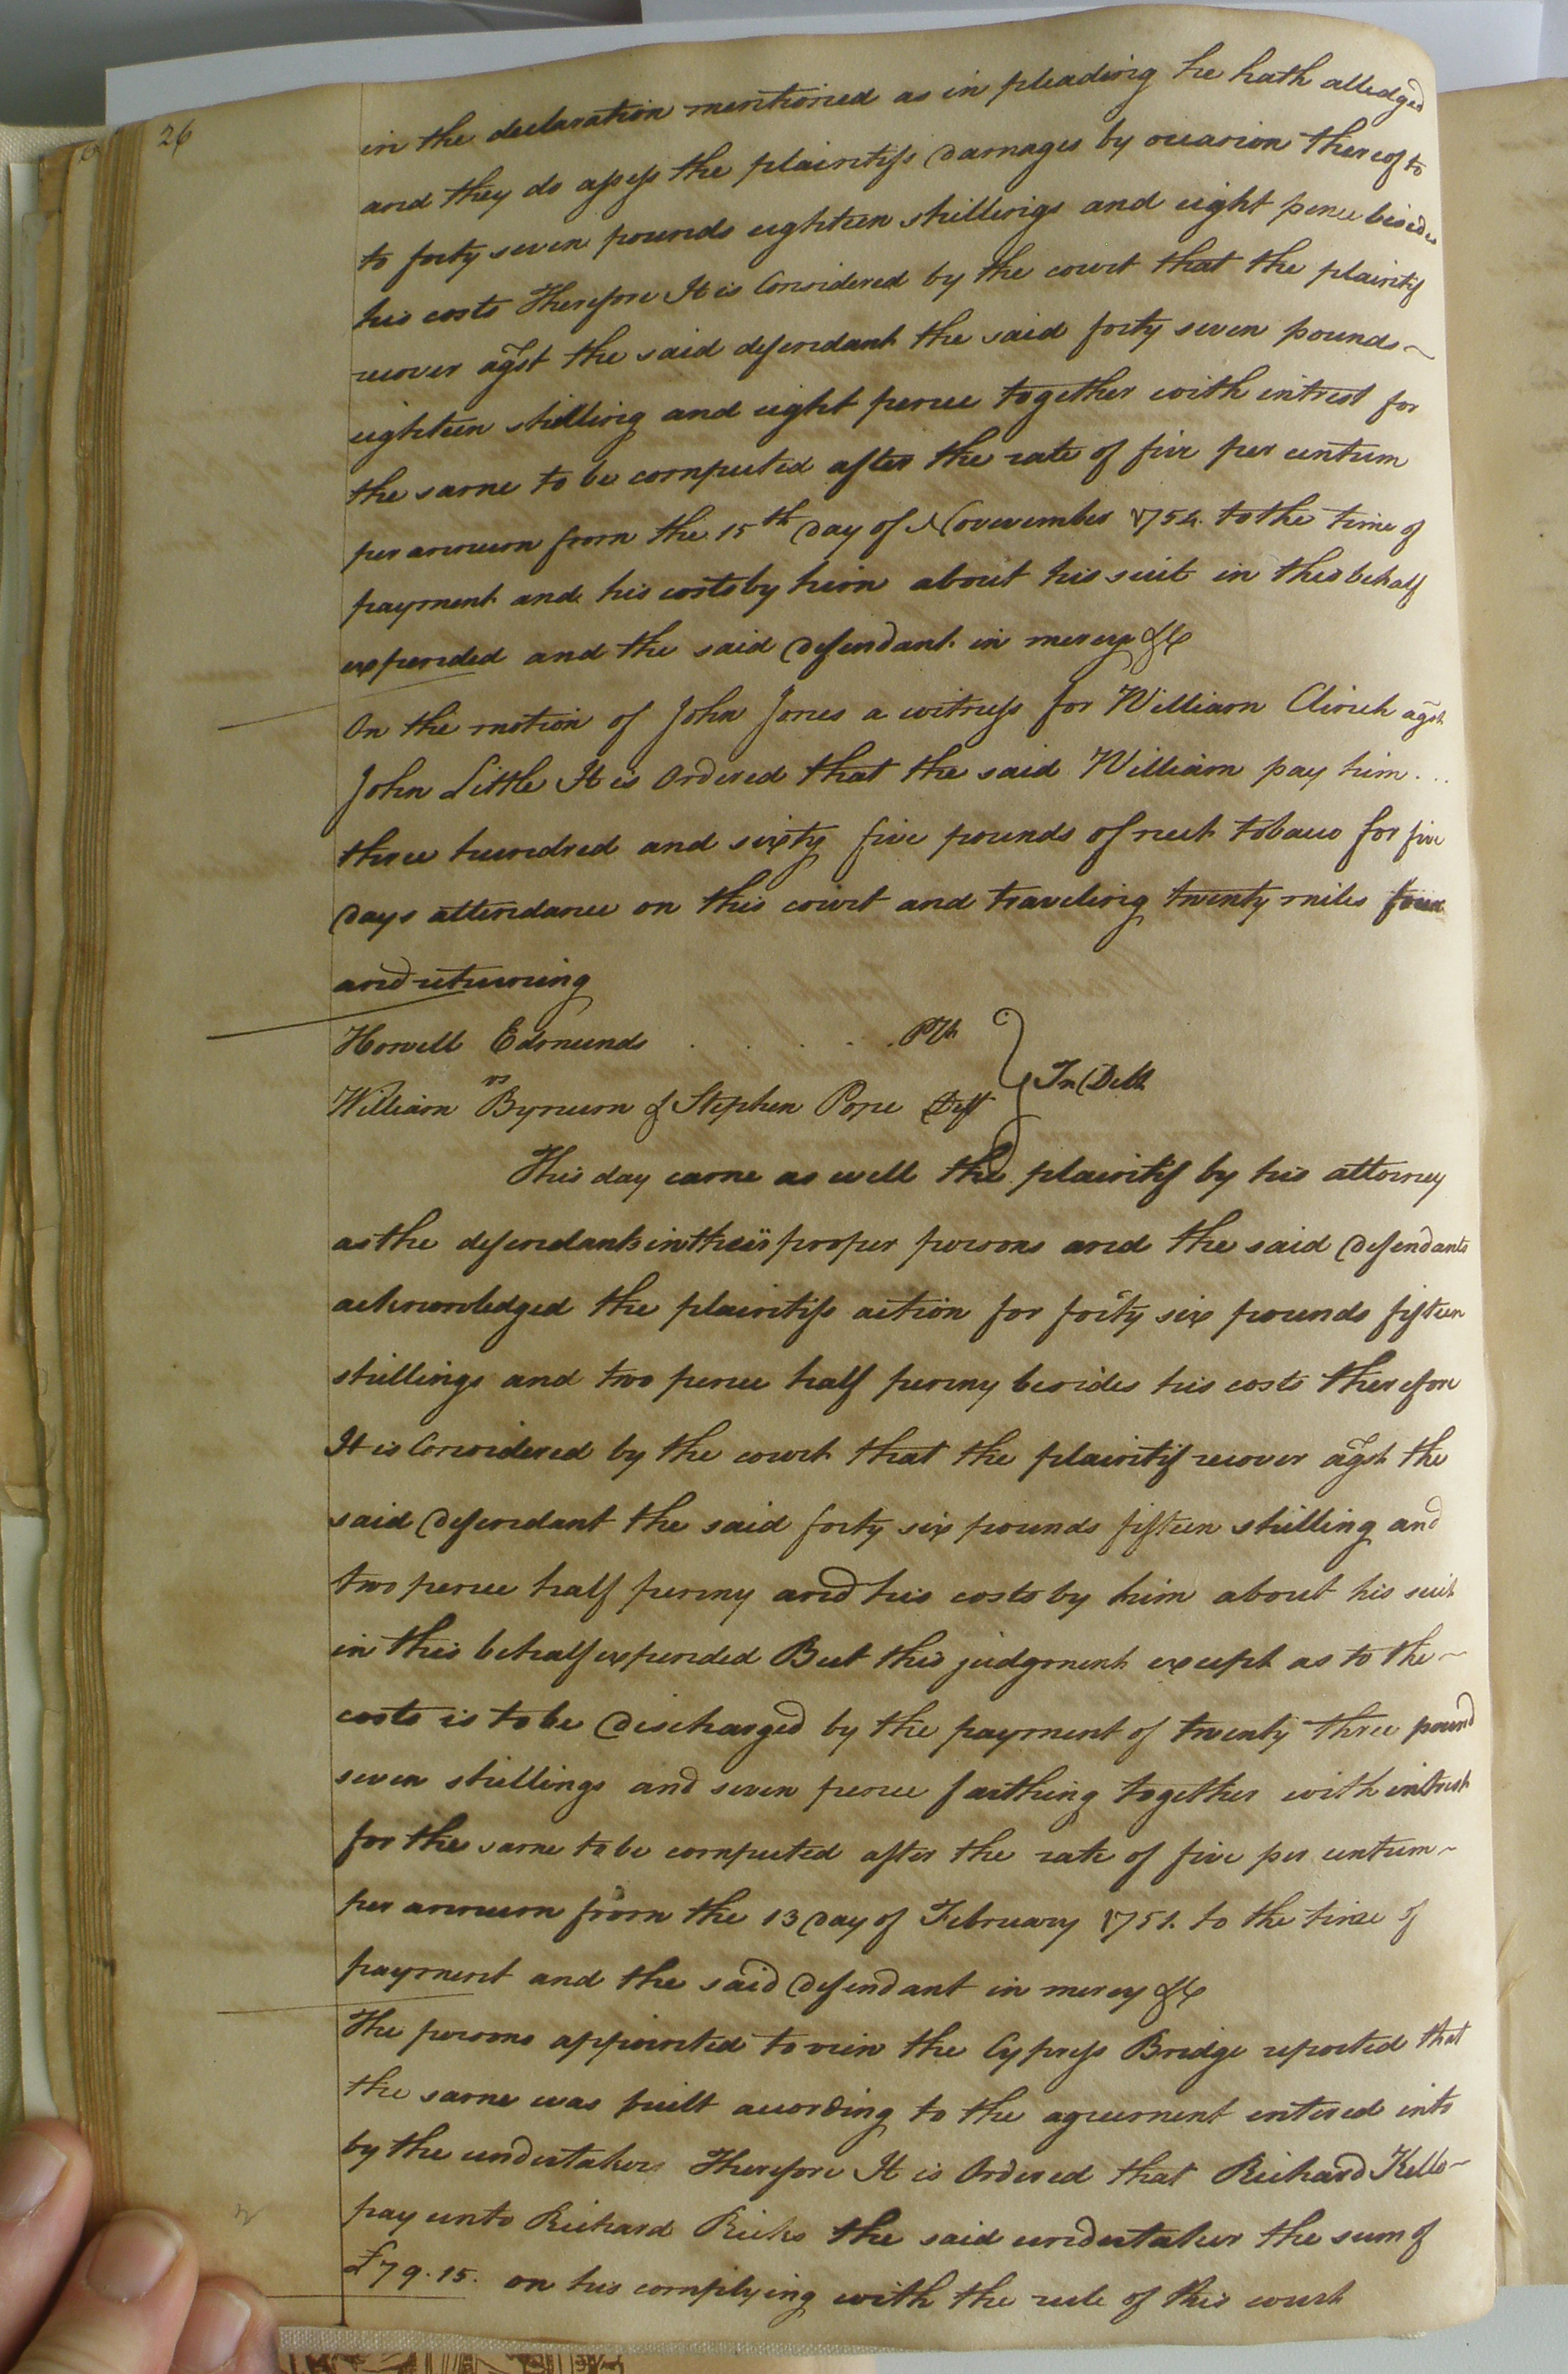 26
in the declaration mentioned as in pleading he hath alledged
and they do assess the plaintifs damages by occasion thereof to
to forty seven pounds eighteen shillings and eight pence besides
his costs Therefore It is Considered by the court that the plaintif
recover agst the said defendant the said forty seven pounds
eighteen shilling and eight pence together with intrest for
the same to be computed after the rate of five per centum
per annum from the 15th Day of November 1754. to the time of
payment and his costs by him about his suit in this behalf
expended and the said Defendant in mercy &c
On the motion of John Jones a witness for William Clinch agst
John Little It is Ordered that the said William pay him ...
three hundred and sixty five pounds of nett tobacco for five
Days attendance on this court and traveling twenty miles
and returning
Howell Edmunds . . . . . Plt
vs
In Debt
William Bynum & Stephen Pope Deft
This day came as well the plaintif by his attorney
as the defendants in their proper persons and the said Defendants
acknowledged the plaintifs action for forty six pounds fifteen
shillings and two pence half penny besides his costs therefore
It is Considered by the court that the plaintif recover agst the
said Defendant the said forty six pounds fifteen shilling and
two pence half penny and his costs by him about his suit
in this behalf expended But this judgment except as to the
costs is to be Discharged by the payment of twenty three pound
seven shillings and seven pence farthing together with intrest
for the same to be computed after the rate of five per centum
per annum from the 13 Day of February 1751. to the time of
payment and the said Defendant in mercy &c
The persons appointed to view the Cypress Bridge reported that
the same was built according to the agreement entered into
by the undertaker Therefore It is Ordered that Richard Kello
pay unto Richard Ricks the said undertaker the sum of
£79.15. on his complying with the rule of this court